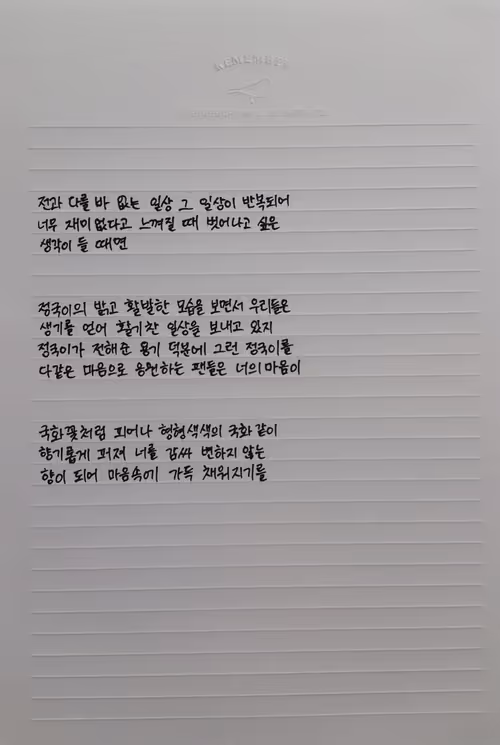 전과 다를 바 없는 일상 그 일상이 반복되어
너무 재미없다고 느껴질 때 벗어나고 싶은
생각이 들 때면
정국이의 밝고 활발한 모습을 보면서 우리들은
생기를 얻어 활기찬 일상을 보내고 있지
정국이가 전해준 용기 덕분에 그런 정국이를
다같은 마음으로 응원하는 팬들은 너의 마음이
국화꽃처럼 피어나 형형색색의 국화같이
향기롭게 퍼져 너를 감싸 변하지 않는
향이 되어 마음속에 가득 채워지기를